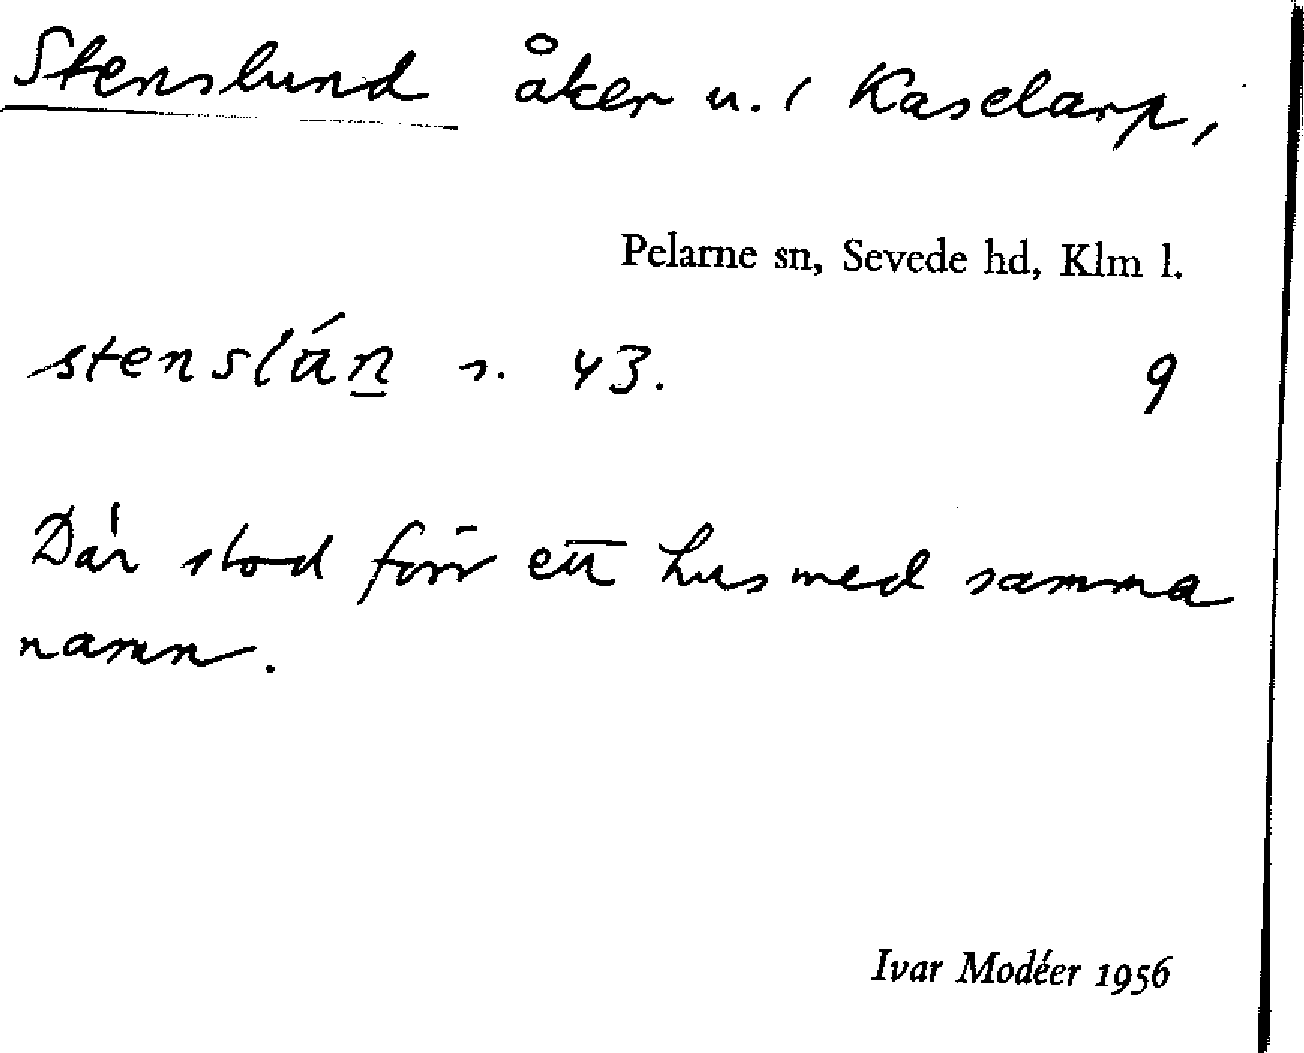 Stenslund åker u. i Kaselarp,
Pelarne sn, Sevede hd, Klm l.
stenslán s. 43. 9
Där stod förr ett hus med samma
namn.
Ivar Modéer 1956